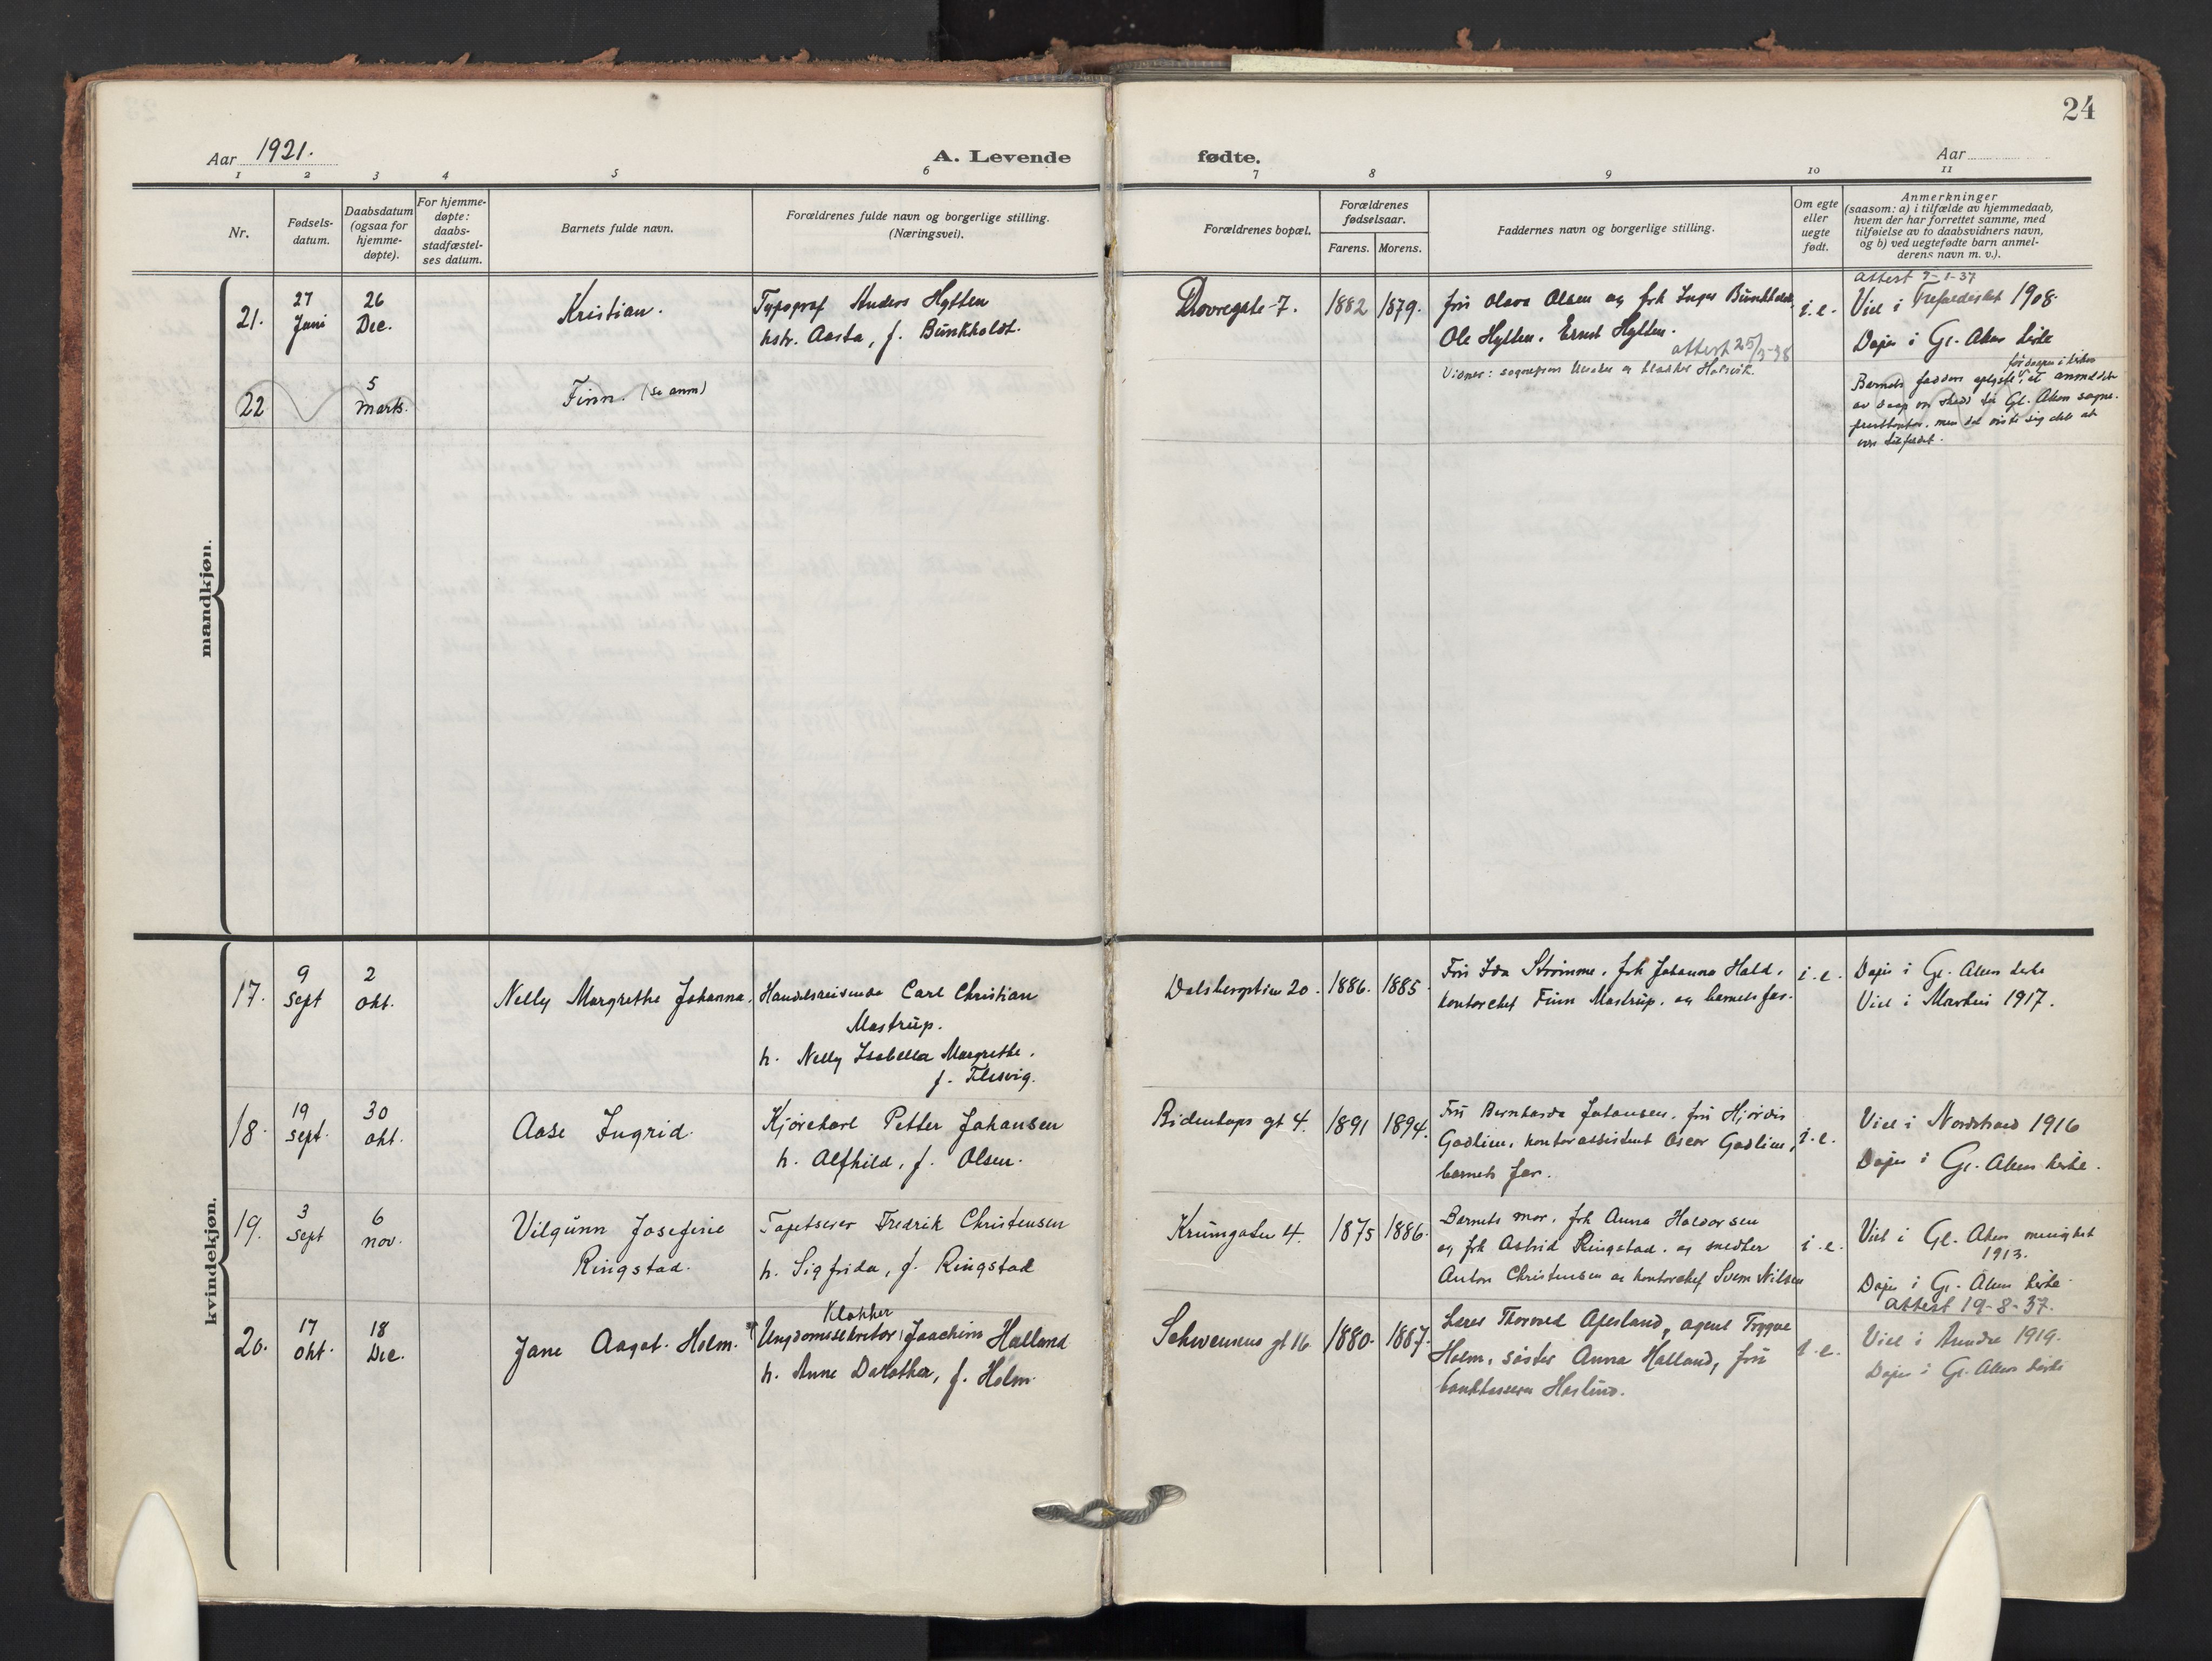 24
Aar 1921.
A. Levende
fødte.
Aar
1 2 3 4 5 6
7 8 9 10 11
Nr.
Fødsels-
datum.
Daabsdatum
(ogsaa for
hjemme-
døpte).
For hjemme-
døpte:
daabs-
stadfæstel-
ses datum.
Barnets fulde navn.
Forældrenes fulde navn og borgerlige stilling.
(Næringsvei).
Forældrenes bopæl.
Forældrenes
fødselsaar.
Farens. Morens.
Faddernes navn og borgerlige stilling.
Om egte
eller
uegte
født.
Anmerkninger
(saasom: a) i tilfælde av hjemmedaab,
hvem der har forrettet samme, med
tilføielse av to daabsvidners navn,
og b) ved uegtefødte barn anmel-
derens navn m. v.).
mandkjøn.
21.
27
Juni
26
Dec.
Kristian.
Typograf Anders Hytten
hstr. Aasta, f. Bünkholdt.
Dovregate 7.
1882
1879.
frü Olava Olsen og frk Inger Bünkholdt
Ole Hytten. Ernst Hytten.
attest 25/3-38
i. e.
attest 9-1-37
Viel i Trefoldighet 1908.
Døpt i Gl. Aker kirke
22
5
marts.
Finn. (se anm)
Barnets faddere
Gl. Aker sogne-
men det viste sig ikke at
være tilfældet.
kvindekjøn.
17.
9
Sept
2
okt.
Nelly Margrethe Johanna.
Handelsreisende Carl Christian
Mastrüp.
h. Nelly Isabella Margrethe.
f. Flesvig.
Dalsbergstien 20.
1886.
1885.
Frü Ida Strømme. frk Johanna Hald.
kontorchef Finn Mastrüp. og barnets far.
i. e.
Døpt i Gl. Aker kirke
Viel i Markus 1917.
18.
19
sept.
30
okt.
Aase Ingrid.
Kjørekarl Petter Johansen
h. Alfhild, f. Olsen.
gt 4.
1891
1894.
Frü Bernharda Johansen. frü Hjørdis
Gadlien, kontorassistent Oscar Gadlien,
barnets far.
i. e.
Viel i Nordstrand 1916
Døpt i Gl. Aker kirke.
19.
3
Sept
6
nov.
Vilgünn Josefine
Ringstad.
Tapetserer Fredrik Christensen
h. Sigfrida, f. Ringstad
Krümgaten 4.
1875
1886.
Barnets mor. frk Anna Halvorsen
og frk Astrid Ringstad. og snedker
Anton Christensen og kontorchef Svein Nilsen
i. e.
Viet i Gl. Aker menighet
1913.
Døpt i Gl. Aker kirke.
attest 19-8-37.
20.
17
okt.
18
Dec.
Jane Aagot. Holm.
Klokker
Ungdomssekretær, Joachim Halland
h. Anne Dorothea, f. Holm.
Schwensens gt 16.
1880.
1887.
Lærer Thorvald Apesland, agent Trygve
Holm, søster Anna Halland, frü
bankkasserer Haslünd.
i. e.
Viel i 1919.
Døpt i Gl. Aker kirke